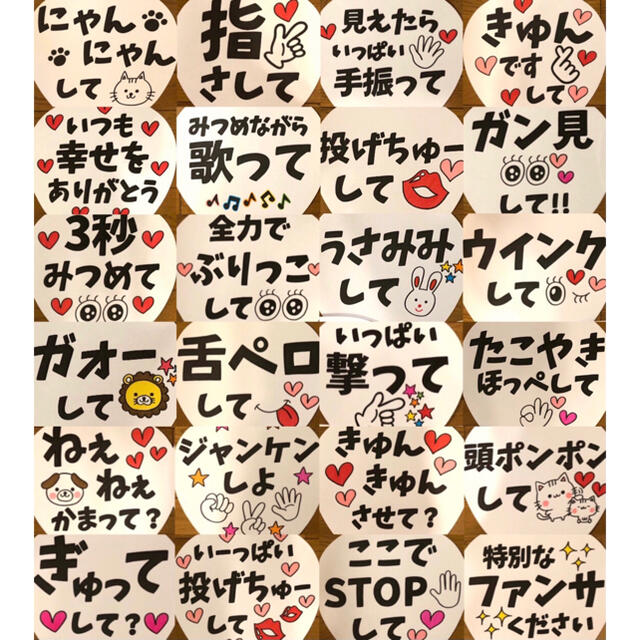 にゃん
にゃん
して
指
さして
見えたら
いっぱい
手振って
きゅん
です
して
いつも
幸せを
ありがとう
みつめながら
歌って
投げちゅー
して
ガン見
して!!
3秒
みつめて
全力で
ぶりっこ
して
うさみみ
して
ウインク
して
ガオー
して
舌ペロ
して
いっぱい
撃って
たこやき
ほっぺして
ねぇ
ねぇ
かまって?
ジャンケン
しよ
きゅん
きゅん
させて?
頭ポンポン
して
ぎゅって
して?
いーっぱい
投げちゅー
して
ここで
STOP
して
特別な
ファンサ
ください